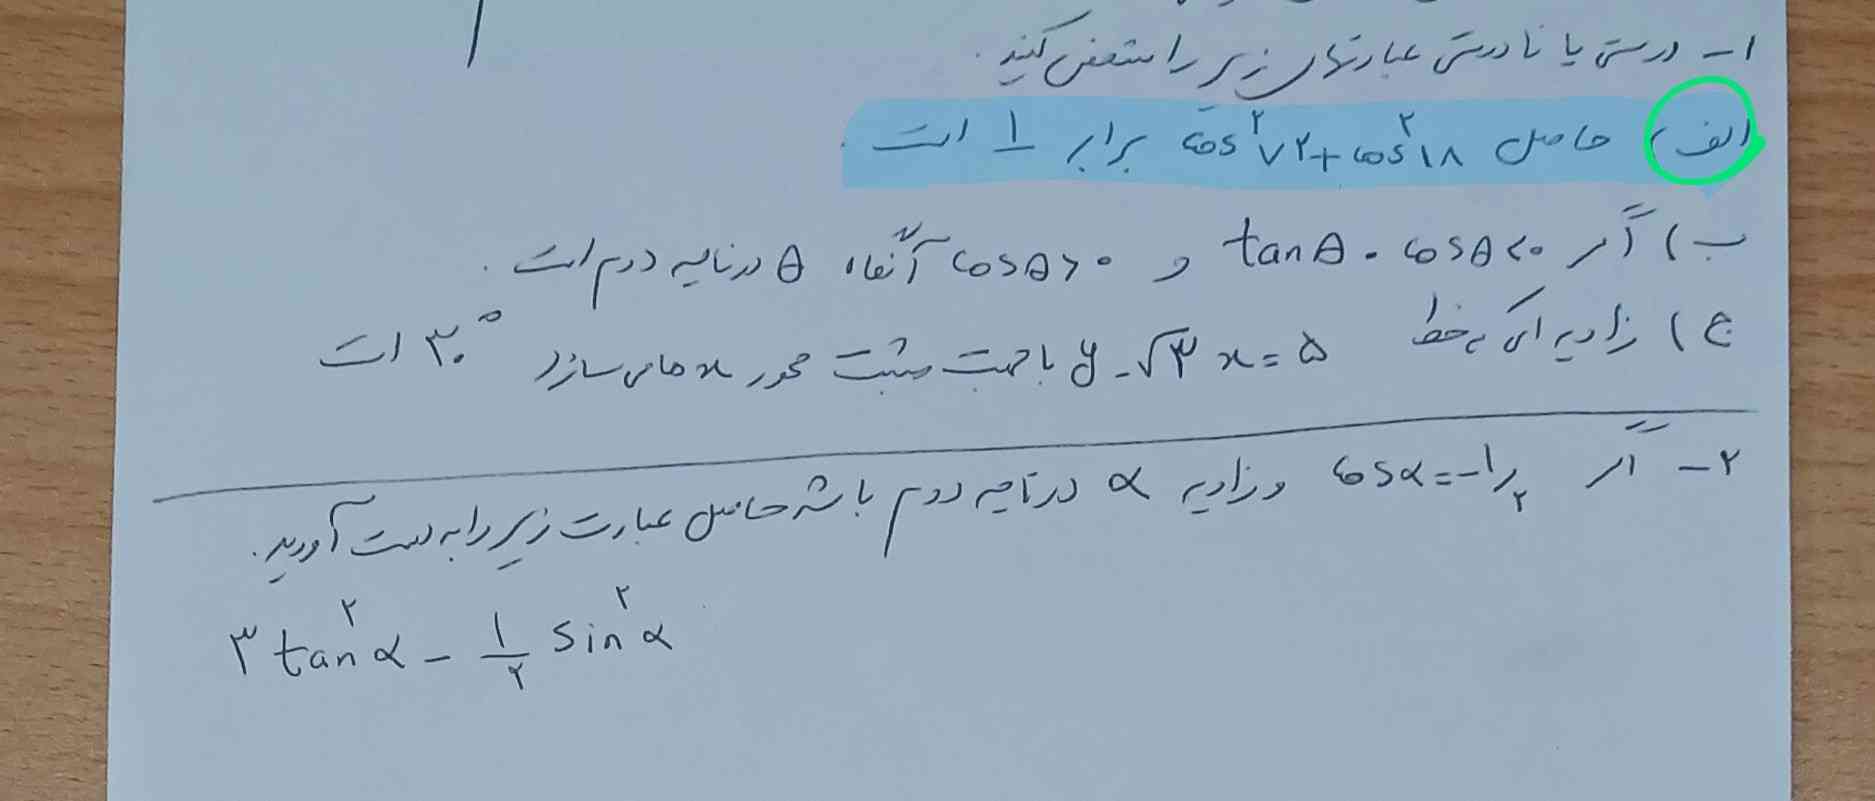 ۱- درستی یا نادرستی عبارتهای زیر را مشخص کنید.
الف) حاصل cos²۷۲+cos²۱۸ برابر ۱ است.
ب) اگر tanθ . cosθ<۰ و cosθ>۰ آنگاه θ در ناحیه دوم است.
ج) زاویه ای که خط y-√۳x=۵ با جهت مثبت محور x ها می سازد ۳۰° است
۲- اگر cosα=-۱/۲ و زاویه α در ناحیه دوم باشد حاصل عبارت زیر را به دست آورید.
۳tan²α - ۱/۲ sin²α